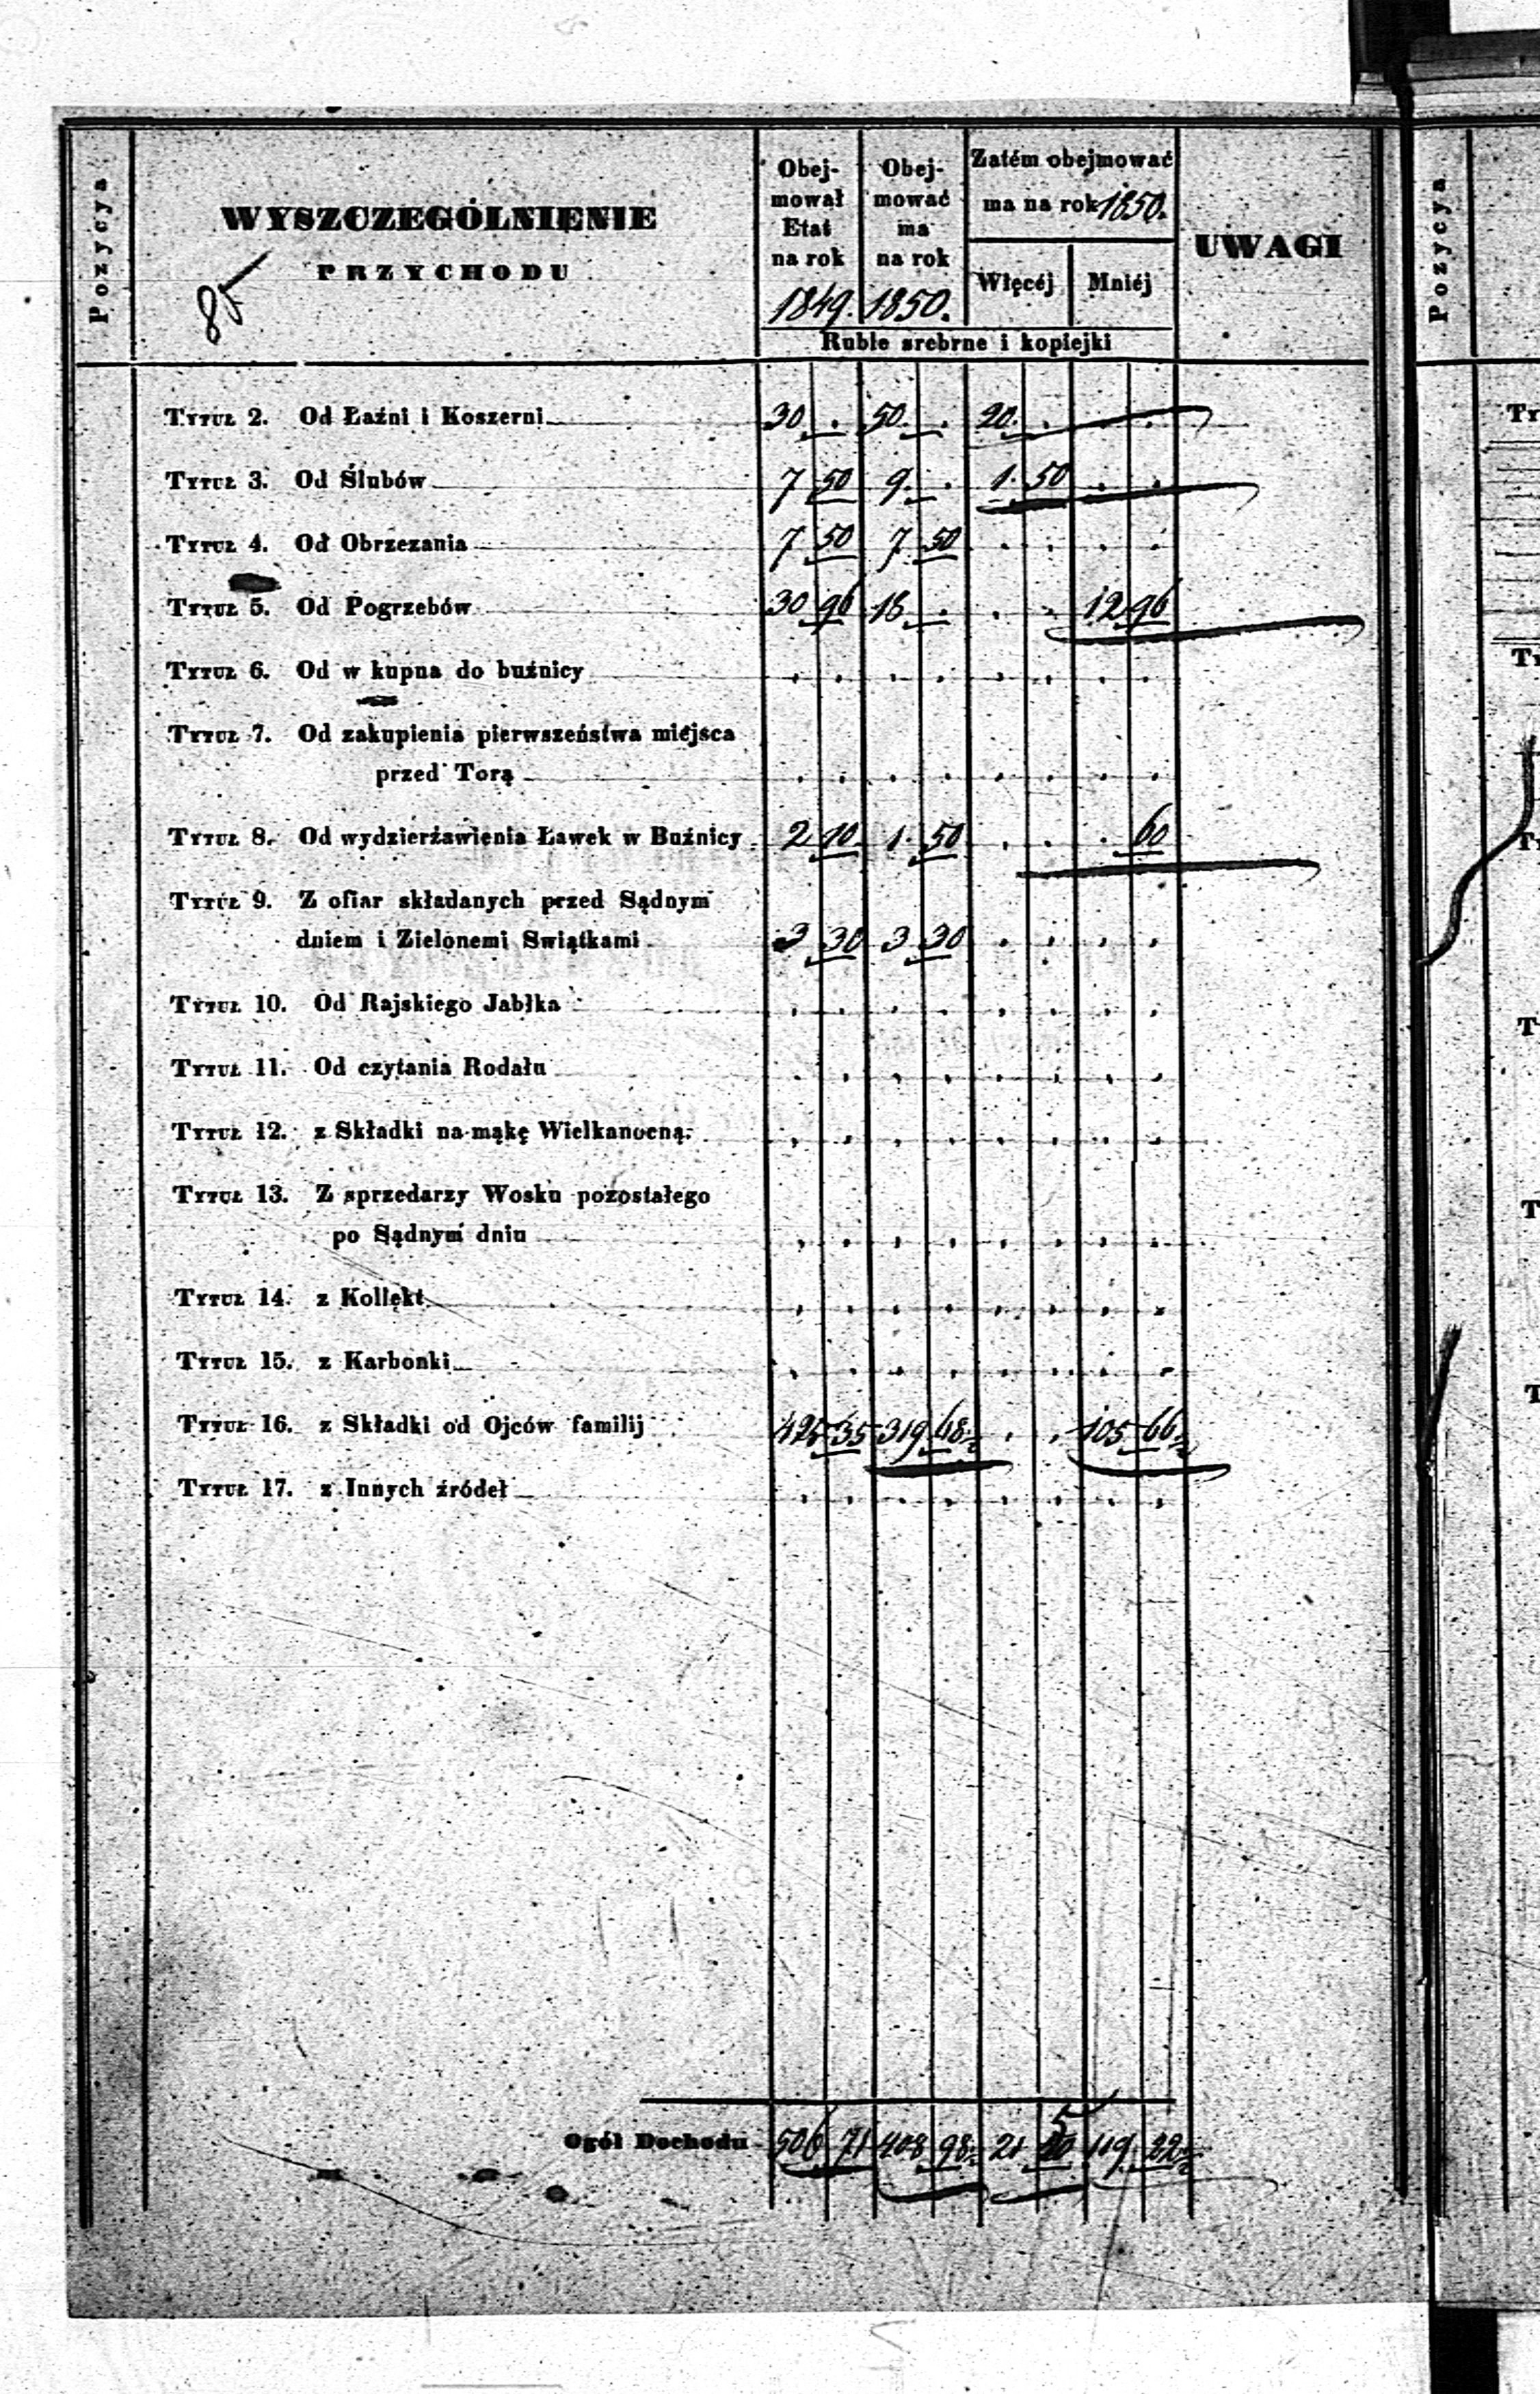 Pozycya
WYSZCZEGÓLNIENIE
PRZYCHODU
85
Obej-
mował
Etat
na rok
1849.
Obej-
mować
ma
na rok
1850.
Zatém obejmować
ma na rok 1850.
Więcéj
Mniéj
UWAGI
Ruble srebrne i kopiejki
TYTUŁ 2. Od Łaźni i Koszerni 30 . 50 . 20 . . .
TYTUŁ 3. Od Ślubów 7 50 9 . 1. 50 . .
TYTUŁ 4. Od Obrzezania 7 50 7 50 . . . .
TYTUŁ 5. Od Pogrzebów 30 96 18 . . . 12 96
TYTUŁ 6. Od w kupna do buźnicy . . . . . . . .
TYTUŁ 7. Od zakupienia pierwszeństwa miéjsca
przed Torą . . . . . . . .
TYTUŁ 8. Od wydzierżawienia Ławek w Buźnicy 2 10 1. 50 . . . 60
TYTUŁ 9. Z ofiar składanych przed Sądnym
dniem i Zielonemi Swiątkami 3 30 3 30 . . . .
TYTUŁ 10. Od Rajskiego Jabłka . . . . . . . .
TYTUŁ 11. Od czytania Rodału . . . . . . . .
TYTUŁ 12. z Składki na mąkę Wielkanocną. . . . . . . . .
TYTUŁ 13. Z sprzedarzy Wosku pozostałego
po Sądnym dniu . . . . . . . .
TYTUŁ 14. z Kollekt . . . . . . . .
TYTUŁ 15. z Karbonki . . . . . . . .
TYTUŁ 16. z Składki od Ojców familij 425 35 319 68½ . . 105 66½
TYTUŁ 17. z Innych źródeł . . . . . . . .
Ogół Dochodu 506 71 408 98½ 21 50 119 22½
Pozycya